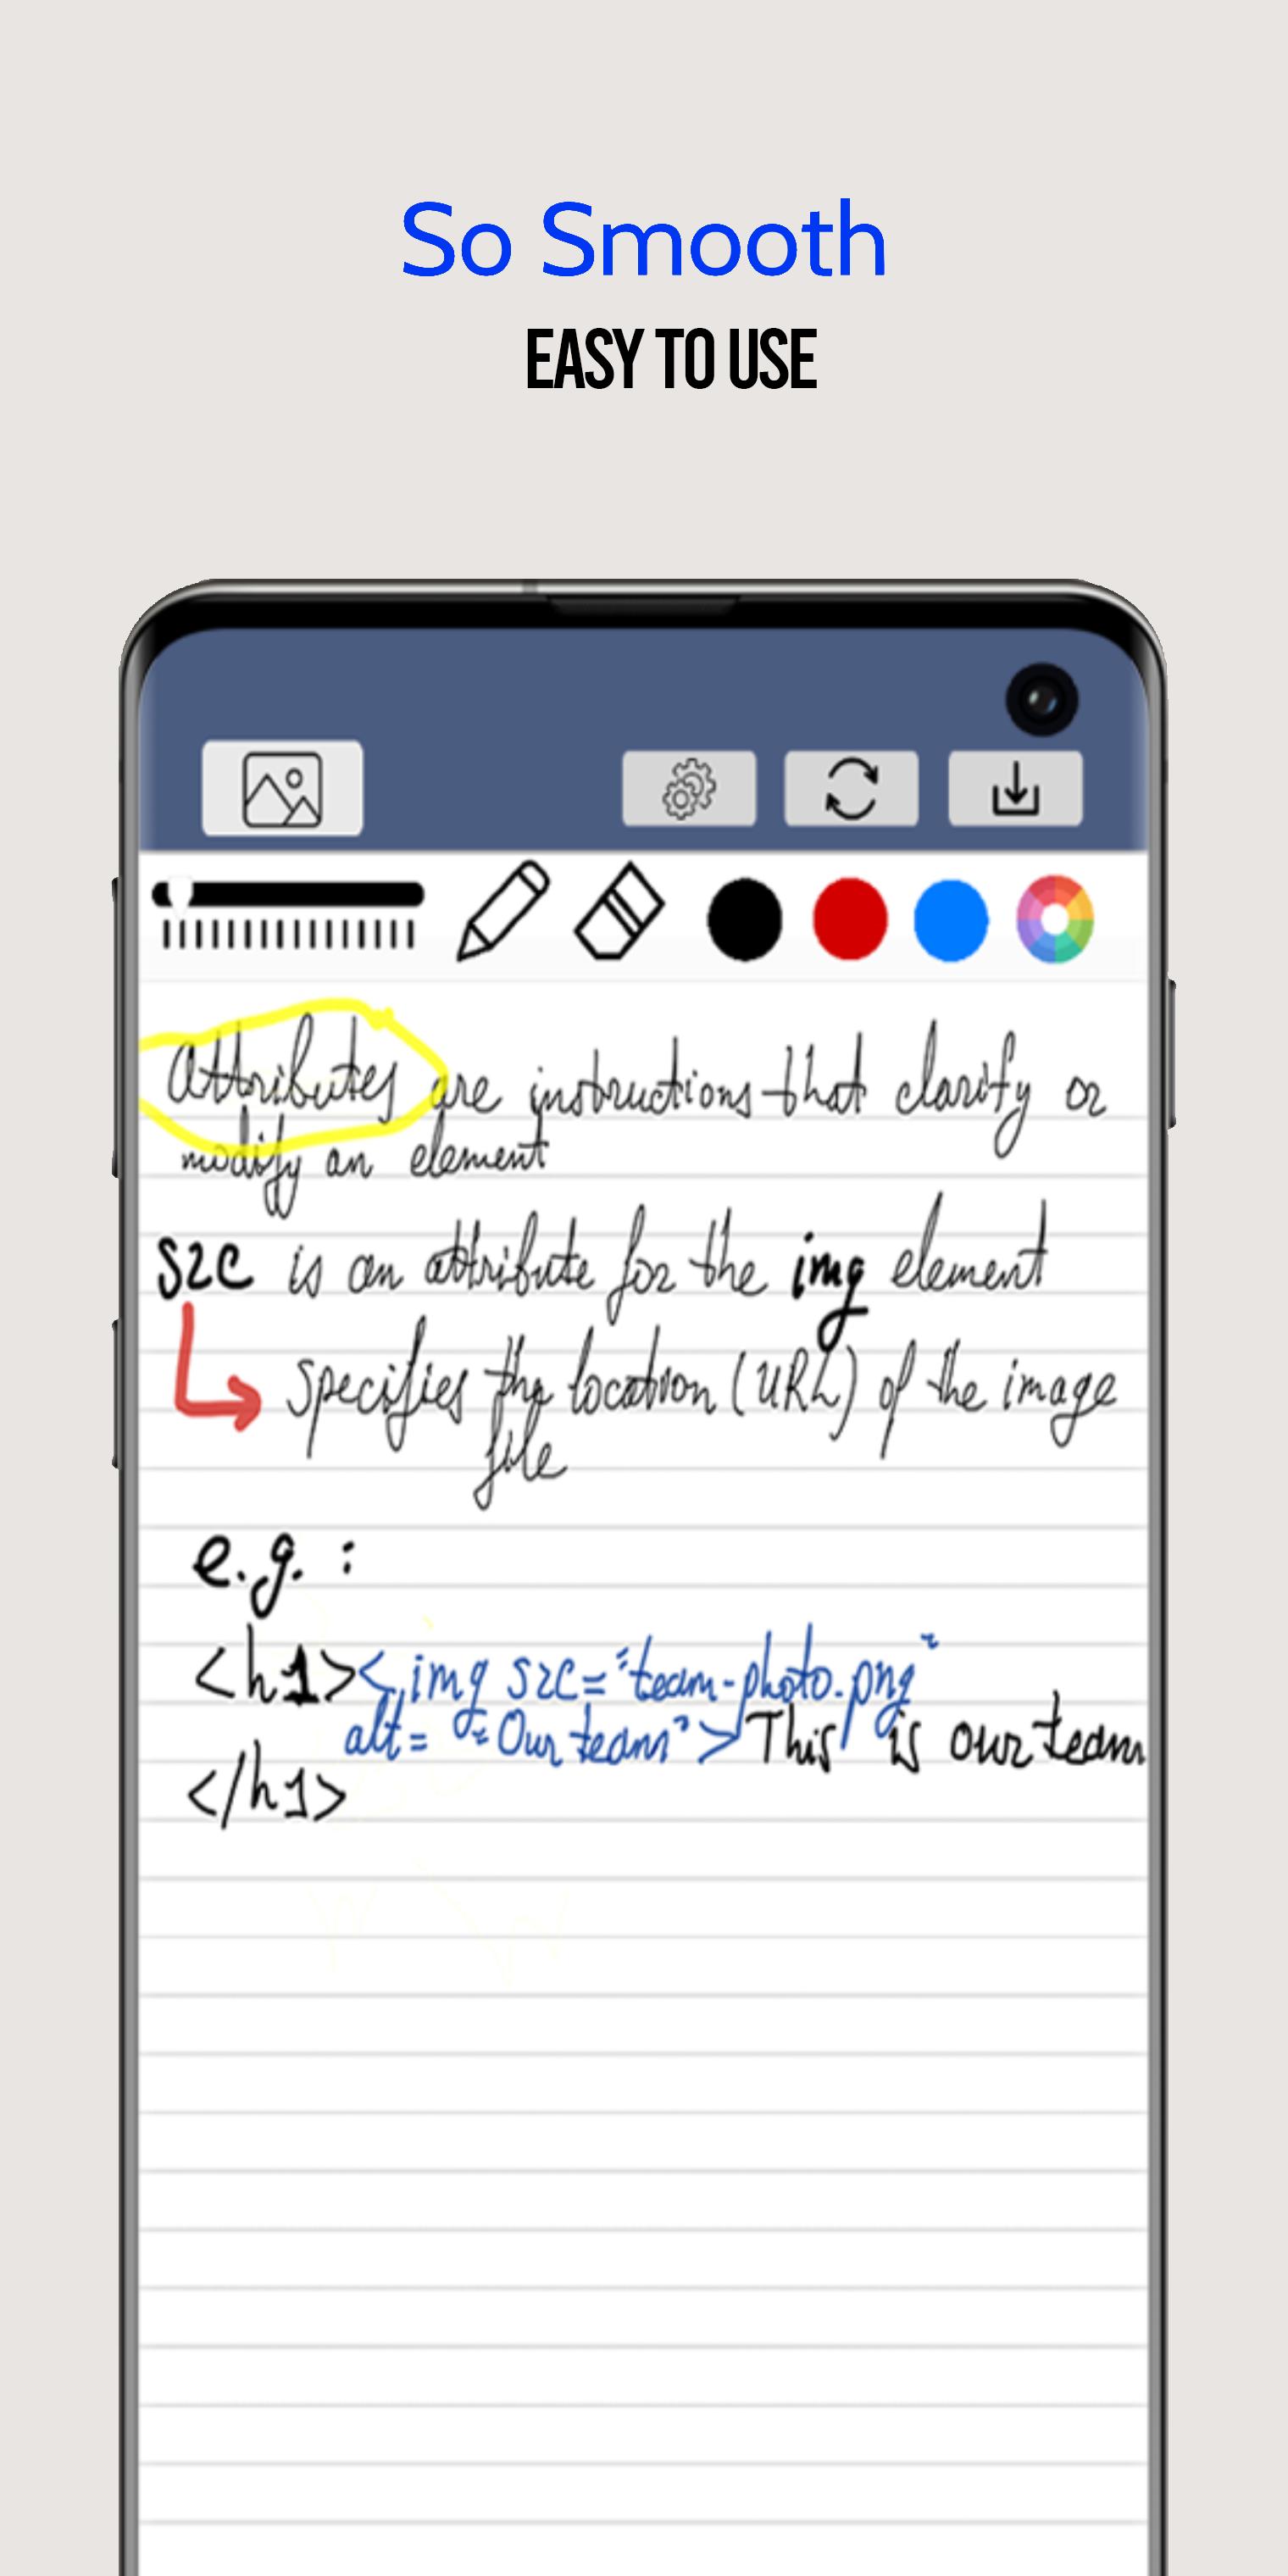 So Smooth
EASY TO USE
Attributes are instructions that clarify or
modify an element
src is an attribute for the img element
specifies the location (URL) of the image
file
e.g. :
<h1><img src="team-photo.png"
alt= "Our team">This is our team
</h1>